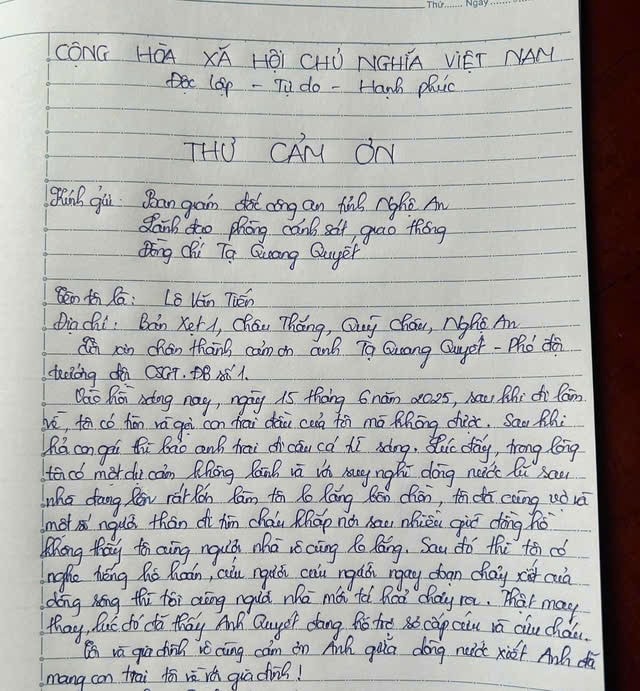 Thứ...... Ngày......
CỘNG HÒA XÃ HỘI CHỦ NGHĨA VIỆT NAM
Độc lập - Tự do - Hạnh phúc
THƯ CẢM ƠN
Kính gửi: Ban giám đốc công an tỉnh Nghệ An
Lãnh đạo phòng cảnh sát giao thông
Đồng chí Tạ Quang Quyết
Tên tôi là: Lô Văn Tiến
Địa chỉ: Bản Xẹt 1, Châu Thắng, Quỳ Châu, Nghệ An
Tôi xin chân thành cảm ơn anh Tạ Quang Quyết - Phó đội
trưởng đội CSGT.ĐB số 1.
Vào hồi sáng nay, ngày 15 tháng 6 năm 2025, sau khi đi làm
về, tôi có tìm và gọi con trai đầu của tôi mà không được. Sau khi
hỏi con gái thì bảo anh trai đi câu cá từ sáng. Lúc đấy, trong lòng
tôi có một dự cảm không lành và với suy nghĩ dòng nước lũ sau
nhà đang lên rất lớn làm tôi lo lắng bồn chồn, tôi đã cùng vợ và
một số người thân đi tìm cháu khắp nơi sau nhiều giờ đồng hồ
không thấy tôi cùng người nhà vô cùng lo lắng. Sau đó thì tôi có
nghe tiếng hô hoán, cứu người cứu người ngay đoạn chảy xiết của
dòng sông thì tôi cùng người nhà mới tá hoả chạy ra. Thật may
thay, lúc đó đã thấy Anh Quyết đang hỗ trợ sơ cấp cứu và cứu cháu.
Tôi và gia đình vô cùng cảm ơn Anh giữa dòng nước xiết Anh đã
mang con trai tôi về với gia đình!